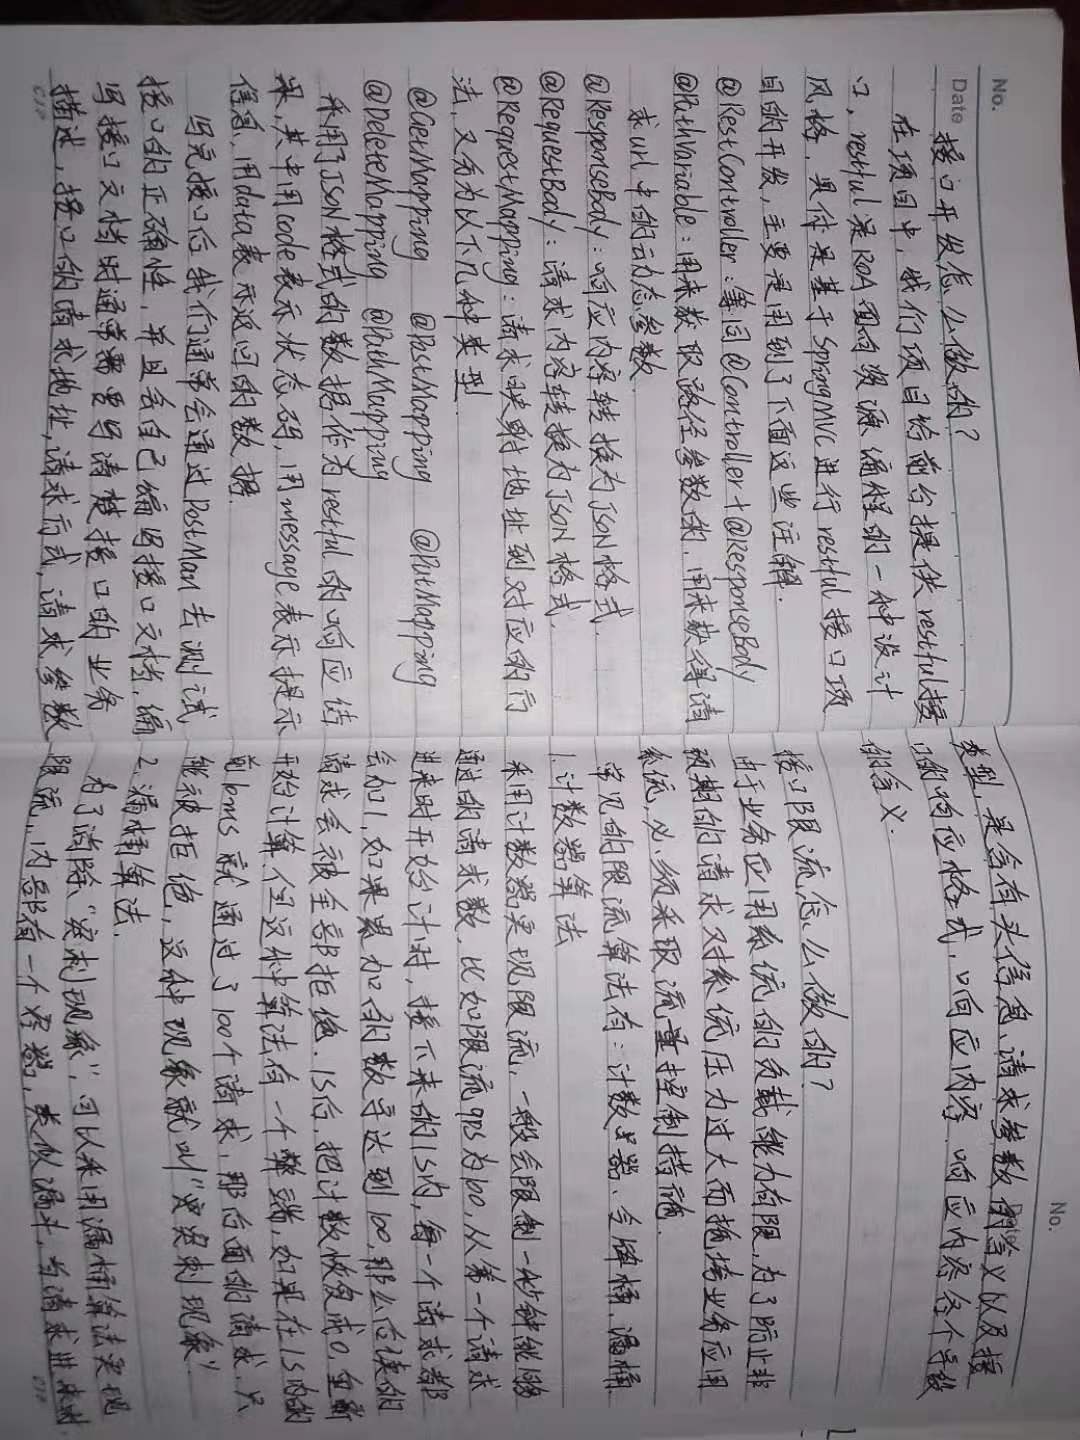 No.
Date
接口开发怎么做的?
在项目中,我们项目给前台提供restful接
口,restful是ROA面向资源编程的一种设计
风格,具体是基于SpringMVC进行restful接口项
目的开发,主要是用到了下面这些注解.
@RestController:等同@Controller+@ResponseBody
@PathVariable:用来获取路径参数的,用来获得请
求url中的动态参数.
@ResponseBody:响应内容转换为JSON格式.
@RequestBody:请求内容转换为JSON格式.
@RequestMapping:请求映射地址到对应的方
法,又分为以下几种类型.
@GetMapping @PostMapping @PutMapping
@DeleteMapping @PathMapping
采用了JSON格式的数据作为restful的响应结
果,其中用code表示状态码,用message表示提示
信息,用data表示返回的数据.
写完接口后我们通常会通过PostMan去测试
接口的正确性,并且会自己编写接口文档,编
写接口文档时通常需要写清楚接口的业务
描述,接口的请求地址,请求方式,请求参数
No.
类型,是否有头信息、请求参数的含义以及接
口的响应格式,响应内容、响应内容各个字段
的含义.
接口限流怎么做的?
由于业务应用系统的负载能力有限,为了防止非
预期的请求对系统压力过大而拖垮业务应用
系统,必须采取流量控制措施.
常见的限流算法有:计数器、令牌桶、漏桶.
1.计数器算法
采用计数器实现限流,一般会限制一秒钟能够
通过的请求数,比如限流qps为100,从第一个请求
进来时开始计时,接下来的1s内,每一个请求都
会加1,如果累加的数字达到100,那么后续的
请求会被全部拒绝.1s后,把计数恢复成0,重新
开始计算,但这种算法有一个弊端,如果在1s内的
前10ms就通过了100个请求,那后面的请求只
能被拒绝,这种现象就叫"突刺现象"
2.漏桶算法.
为了消除"突刺现象",可以采用漏桶算法实现
限流,内部有一个容器,类似漏斗,当请求进来时